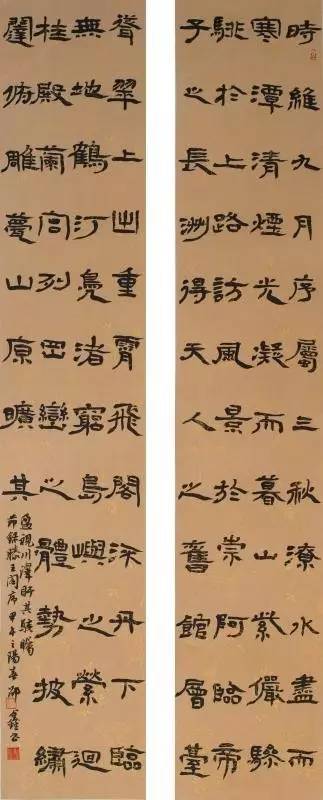 時維九月序屬三秋潦水盡而
寒潭清煙光凝而暮山紫儼驂
騑於上路訪風景於崇阿臨帝
子之長洲得天人之舊館層臺
聳翠上出重霄飛閣流丹下臨
無地鶴汀鳧渚窮島嶼之縈迴
桂殿蘭宮列岡巒之體勢披繡
闥俯雕甍山原曠其
盈視川澤盱其駭矚
節錄滕王閣序甲午之陽春邵